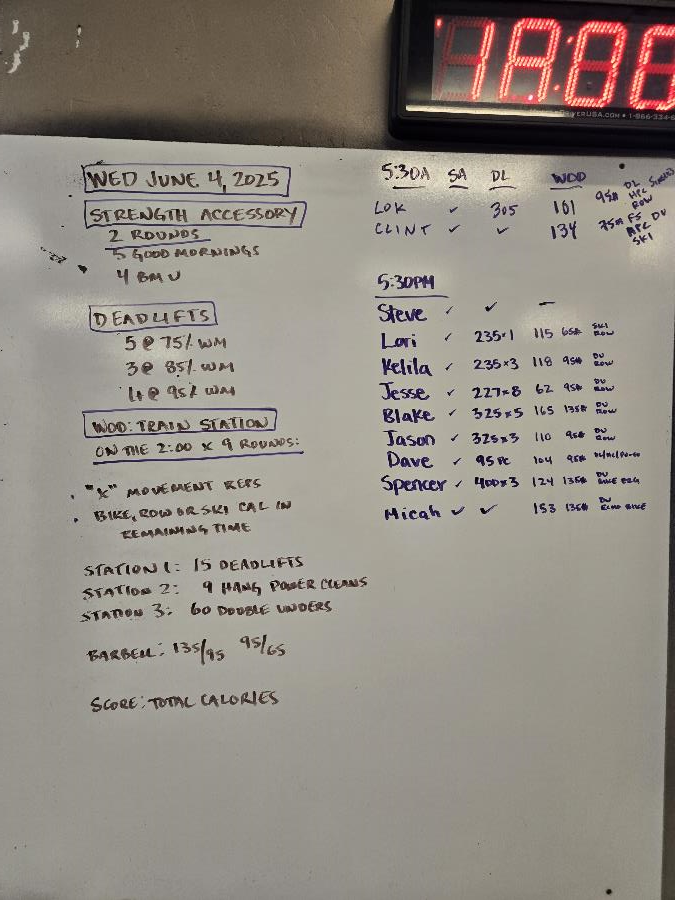 18:00
WED JUNE 4, 2025
STRENGTH ACCESSORY
2 ROUNDS
5 GOOD MORNINGS
4 BMU
DEADLIFTS
5 @ 75% WM
3 @ 85% WM
1+ @ 95% WM
WOD: TRAIN STATION
ON THE 2:00 X 9 ROUNDS:
• "X" MOVEMENT REPS
• BIKE, ROW OR SKI CAL IN
REMAINING TIME
STATION 1: 15 DEADLIFTS
STATION 2: 9 HANG POWER CLEANS
STATION 3: 60 DOUBLE UNDERS
BARBELL: 135/95 95/65
SCORE: TOTAL CALORIES
5:30A SA DL WOD
LOK ✓ 305 101 95# DL HPC ROW
CLINT ✓ ✓ 134 75# FS HPC DU SKI
5:30PM
Steve ✓ ✓ –
Lori ✓ 235×1 115 65# SKI ROW
Kelila ✓ 235×3 118 95# DU ROW
Jesse ✓ 227×8 62 95# DU ROW
Blake ✓ 325×5 165 135# DU ROW
Jason ✓ 325×3 110 95# DU ROW
Dave ✓ 95 PC 104 95#
Spencer ✓ 400×3 124 135# DU BIKE ERG
Micah ✓ ✓ 153 135# DU ECHO BIKE